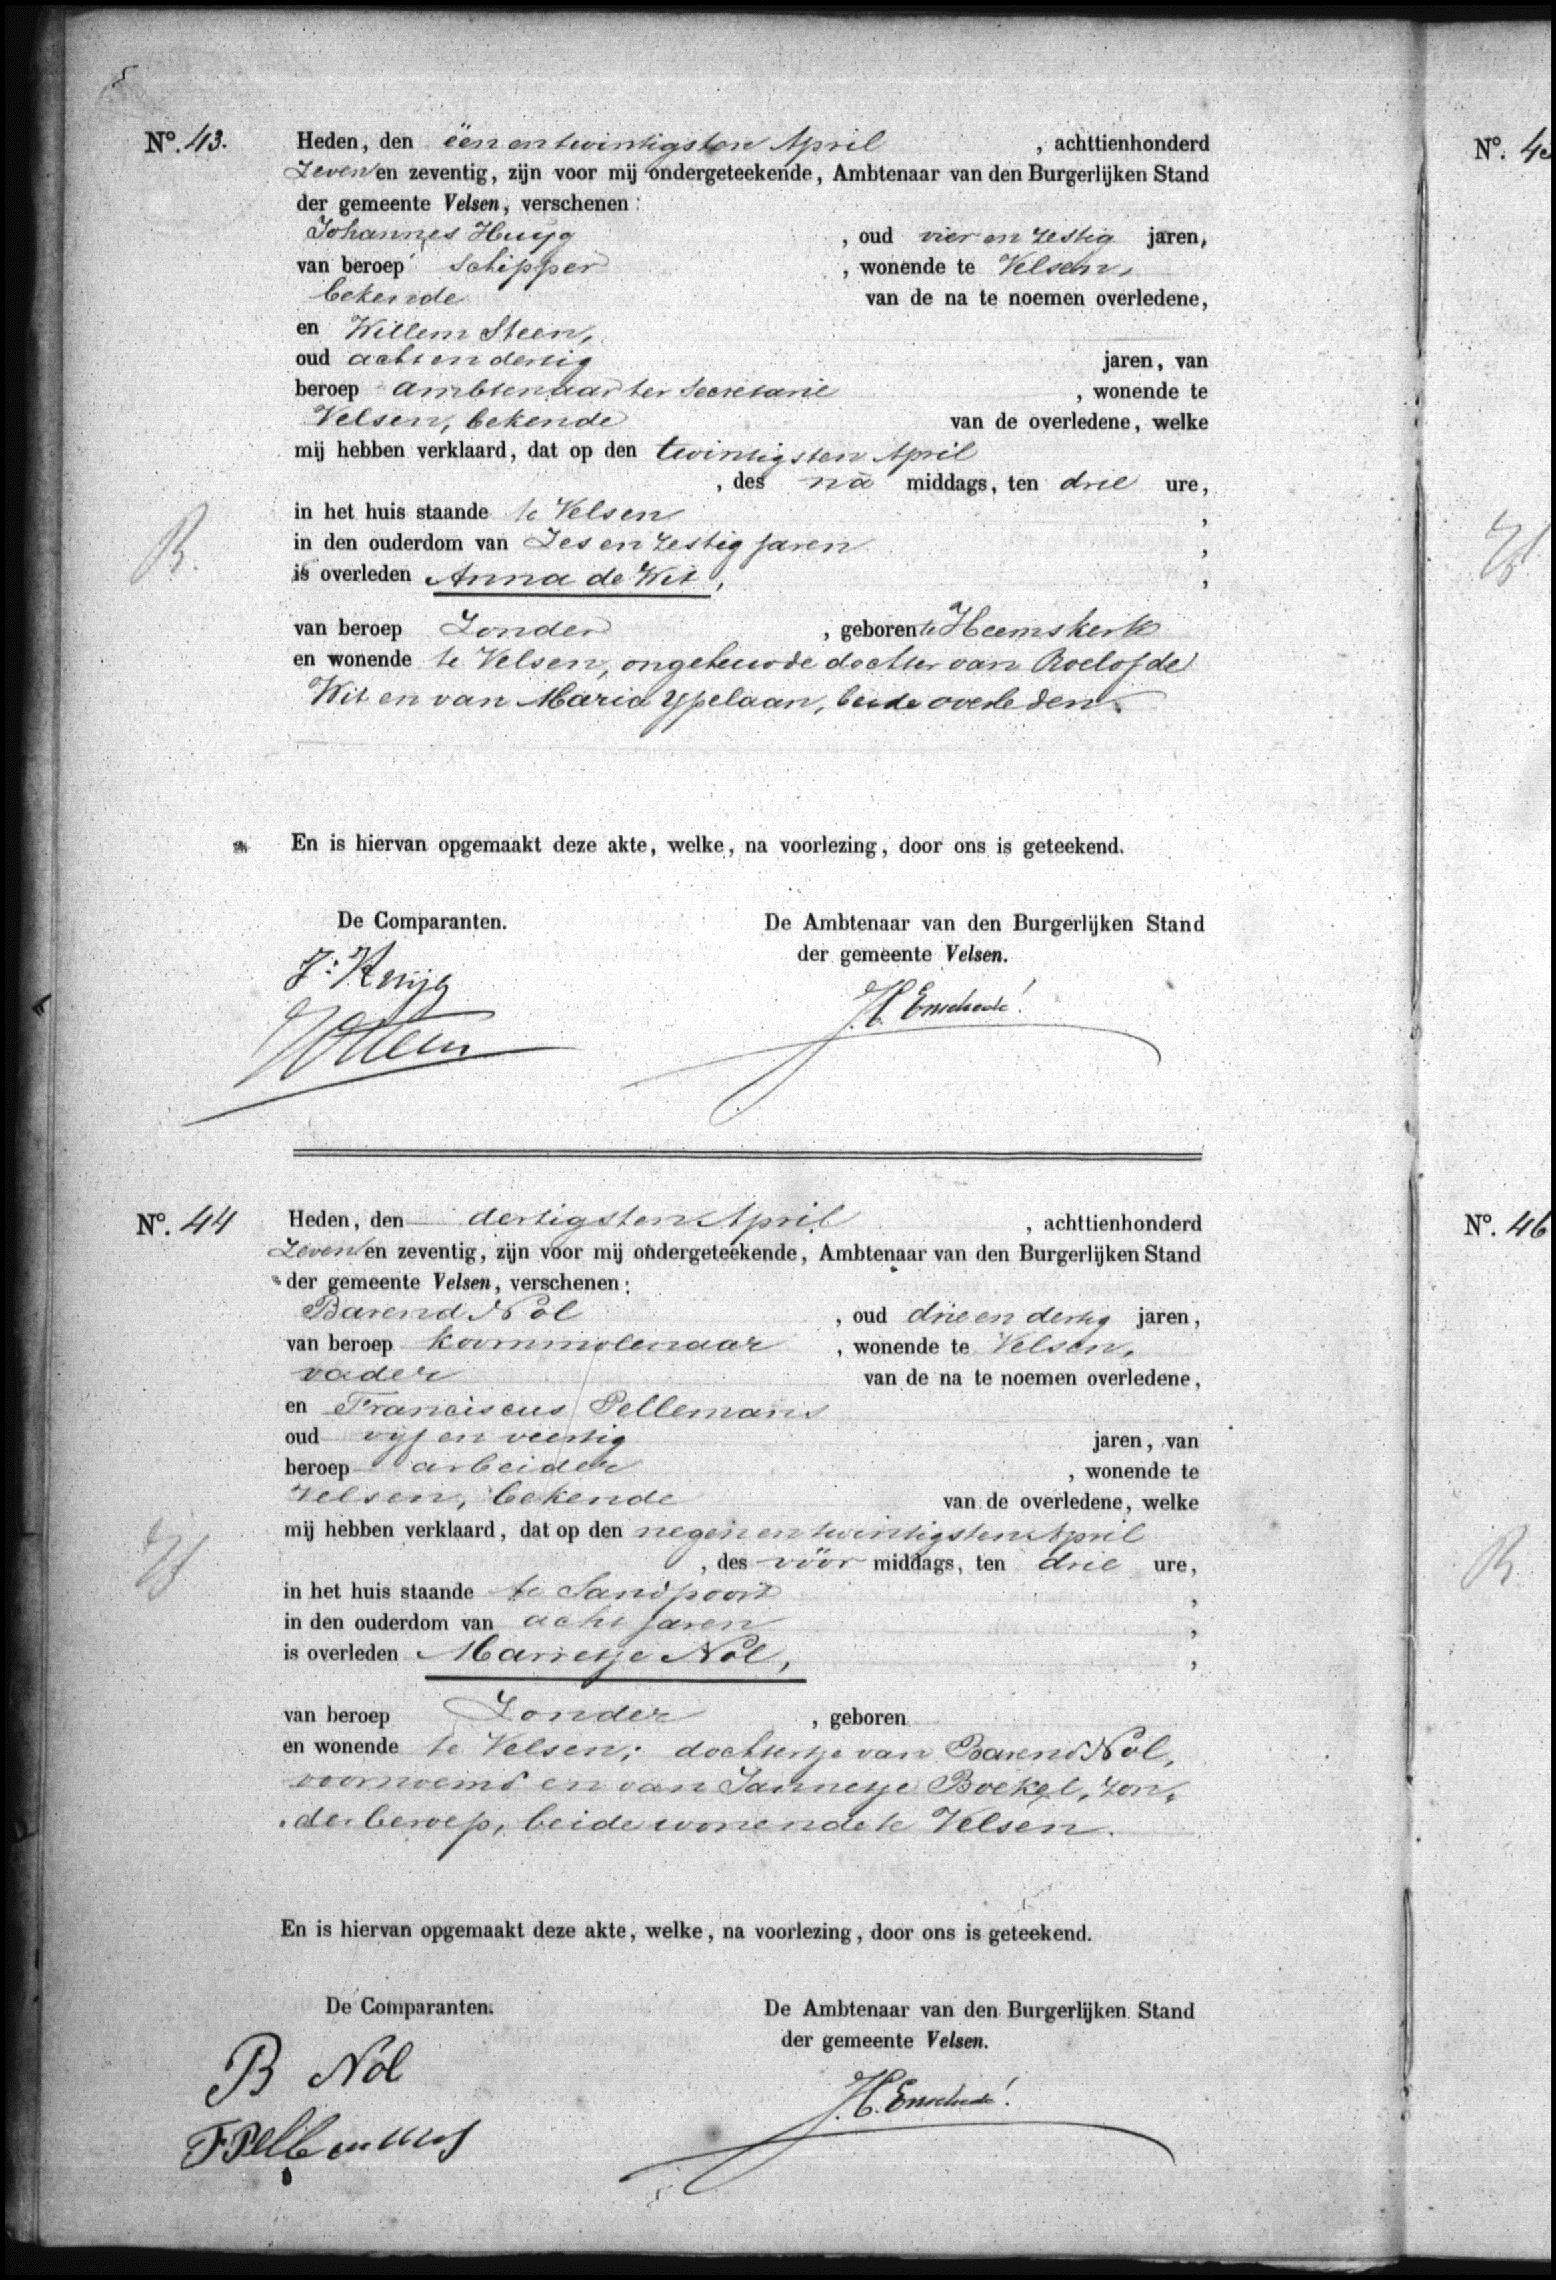 No. 43. Heden, den één en twintigsten April , achttienhonderd
Zeven en zeventig, zijn voor mij ondergeteekende, Ambtenaar van den Burgerlijken Stand
der gemeente Velsen, verschenen:
Johannes Huyg , oud vier en zestig jaren,
van beroep schipper , wonende te Velsen,
bekende van de na te noemen overledene,
en Willem Steen,
oud acht en dertig jaren, van
beroep ambtenaar ter secretarie , wonende te
Velsen, bekende van de overledene, welke
mij hebben verklaard, dat op den twintigsten April
, des na middags, ten drie ure,
in het huis staande te Velsen ,
in den ouderdom van Zes en zestig jaren ,
is overleden Anna de Wit, ,
van beroep Zonder , geboren te Heemskerk
en wonende te Velsen, ongehuwde dochter van Roelof de
Wit en van Maria Ypelaan, beide overleden.
En is hiervan opgemaakt deze akte, welke, na voorlezing, door ons is geteekend.
De Comparanten. De Ambtenaar van den Burgerlijken Stand
der gemeente Velsen.
J: Huijg
WSteen
H. Enschedé
No. 44 Heden, den dertigsten April , achttienhonderd
Zeven en zeventig, zijn voor mij ondergeteekende, Ambtenaar van den Burgerlijken Stand
der gemeente Velsen, verschenen:
Barend Nol , oud drie en dertig jaren,
van beroep koornmolenaar , wonende te Velsen,
vader van de na te noemen overledene,
en Franciscus Pellemans
oud vijf en veertig jaren, van
beroep arbeider , wonende te
Velsen, bekende van de overledene, welke
mij hebben verklaard, dat op den negen en twintigsten April
, des vóór middags, ten drie ure,
in het huis staande te Sandpoort ,
in den ouderdom van acht jaren ,
is overleden Marretje Nol, ,
van beroep Zonder , geboren
en wonende te Velsen; dochtertje van Barend Nol,
voornoemd en van Jannetje Boekel, zon-
der beroep, beide wonende te Velsen.
En is hiervan opgemaakt deze akte, welke, na voorlezing, door ons is geteekend.
De Comparanten. De Ambtenaar van den Burgerlijken Stand
der gemeente Velsen.
B Nol
FPellemans
H. Enschedé
No. 45
No. 46